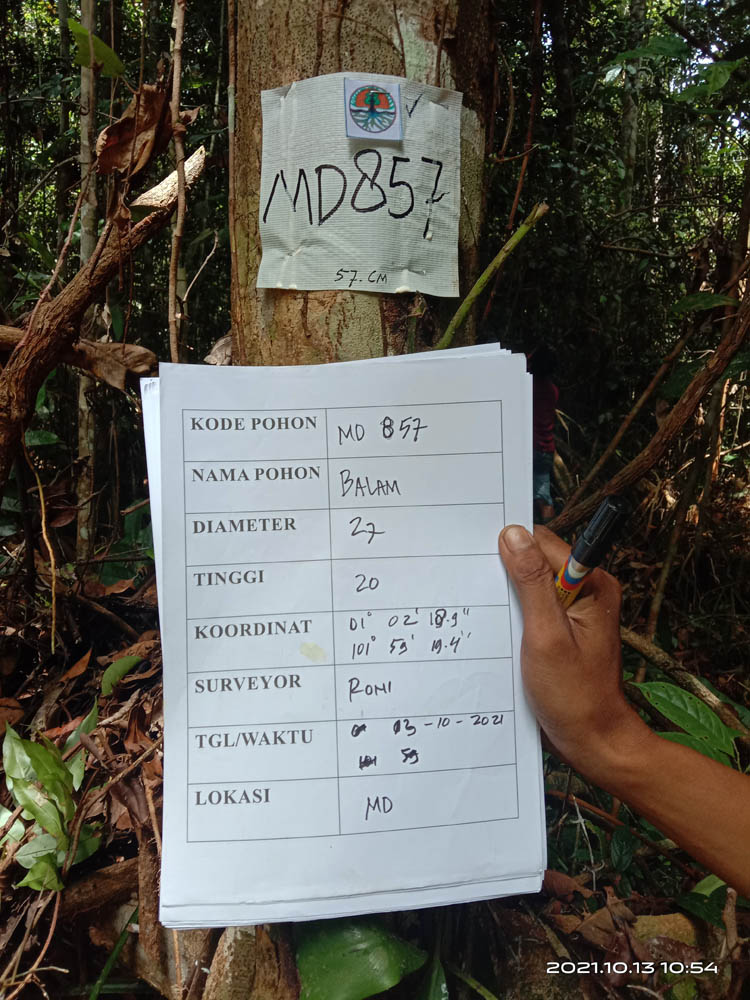 MD857
57.CM
KODE POHON MD 857
NAMA POHON BALAM
DIAMETER 27
TINGGI 20
KOORDINAT 01° 02' 18.9"
101° 59' 19.4"
SURVEYOR ROMI
TGL/WAKTU 13-10-2021
LOKASI MD
2021.10.13 10:54